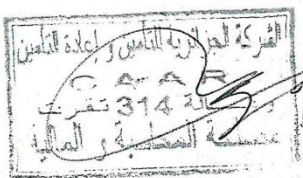 الشركة الجزائرية للتأمين و إعادة التأمين
C A A R
وكالة 314 تقرت
مصلحة المحاسبة و المالية